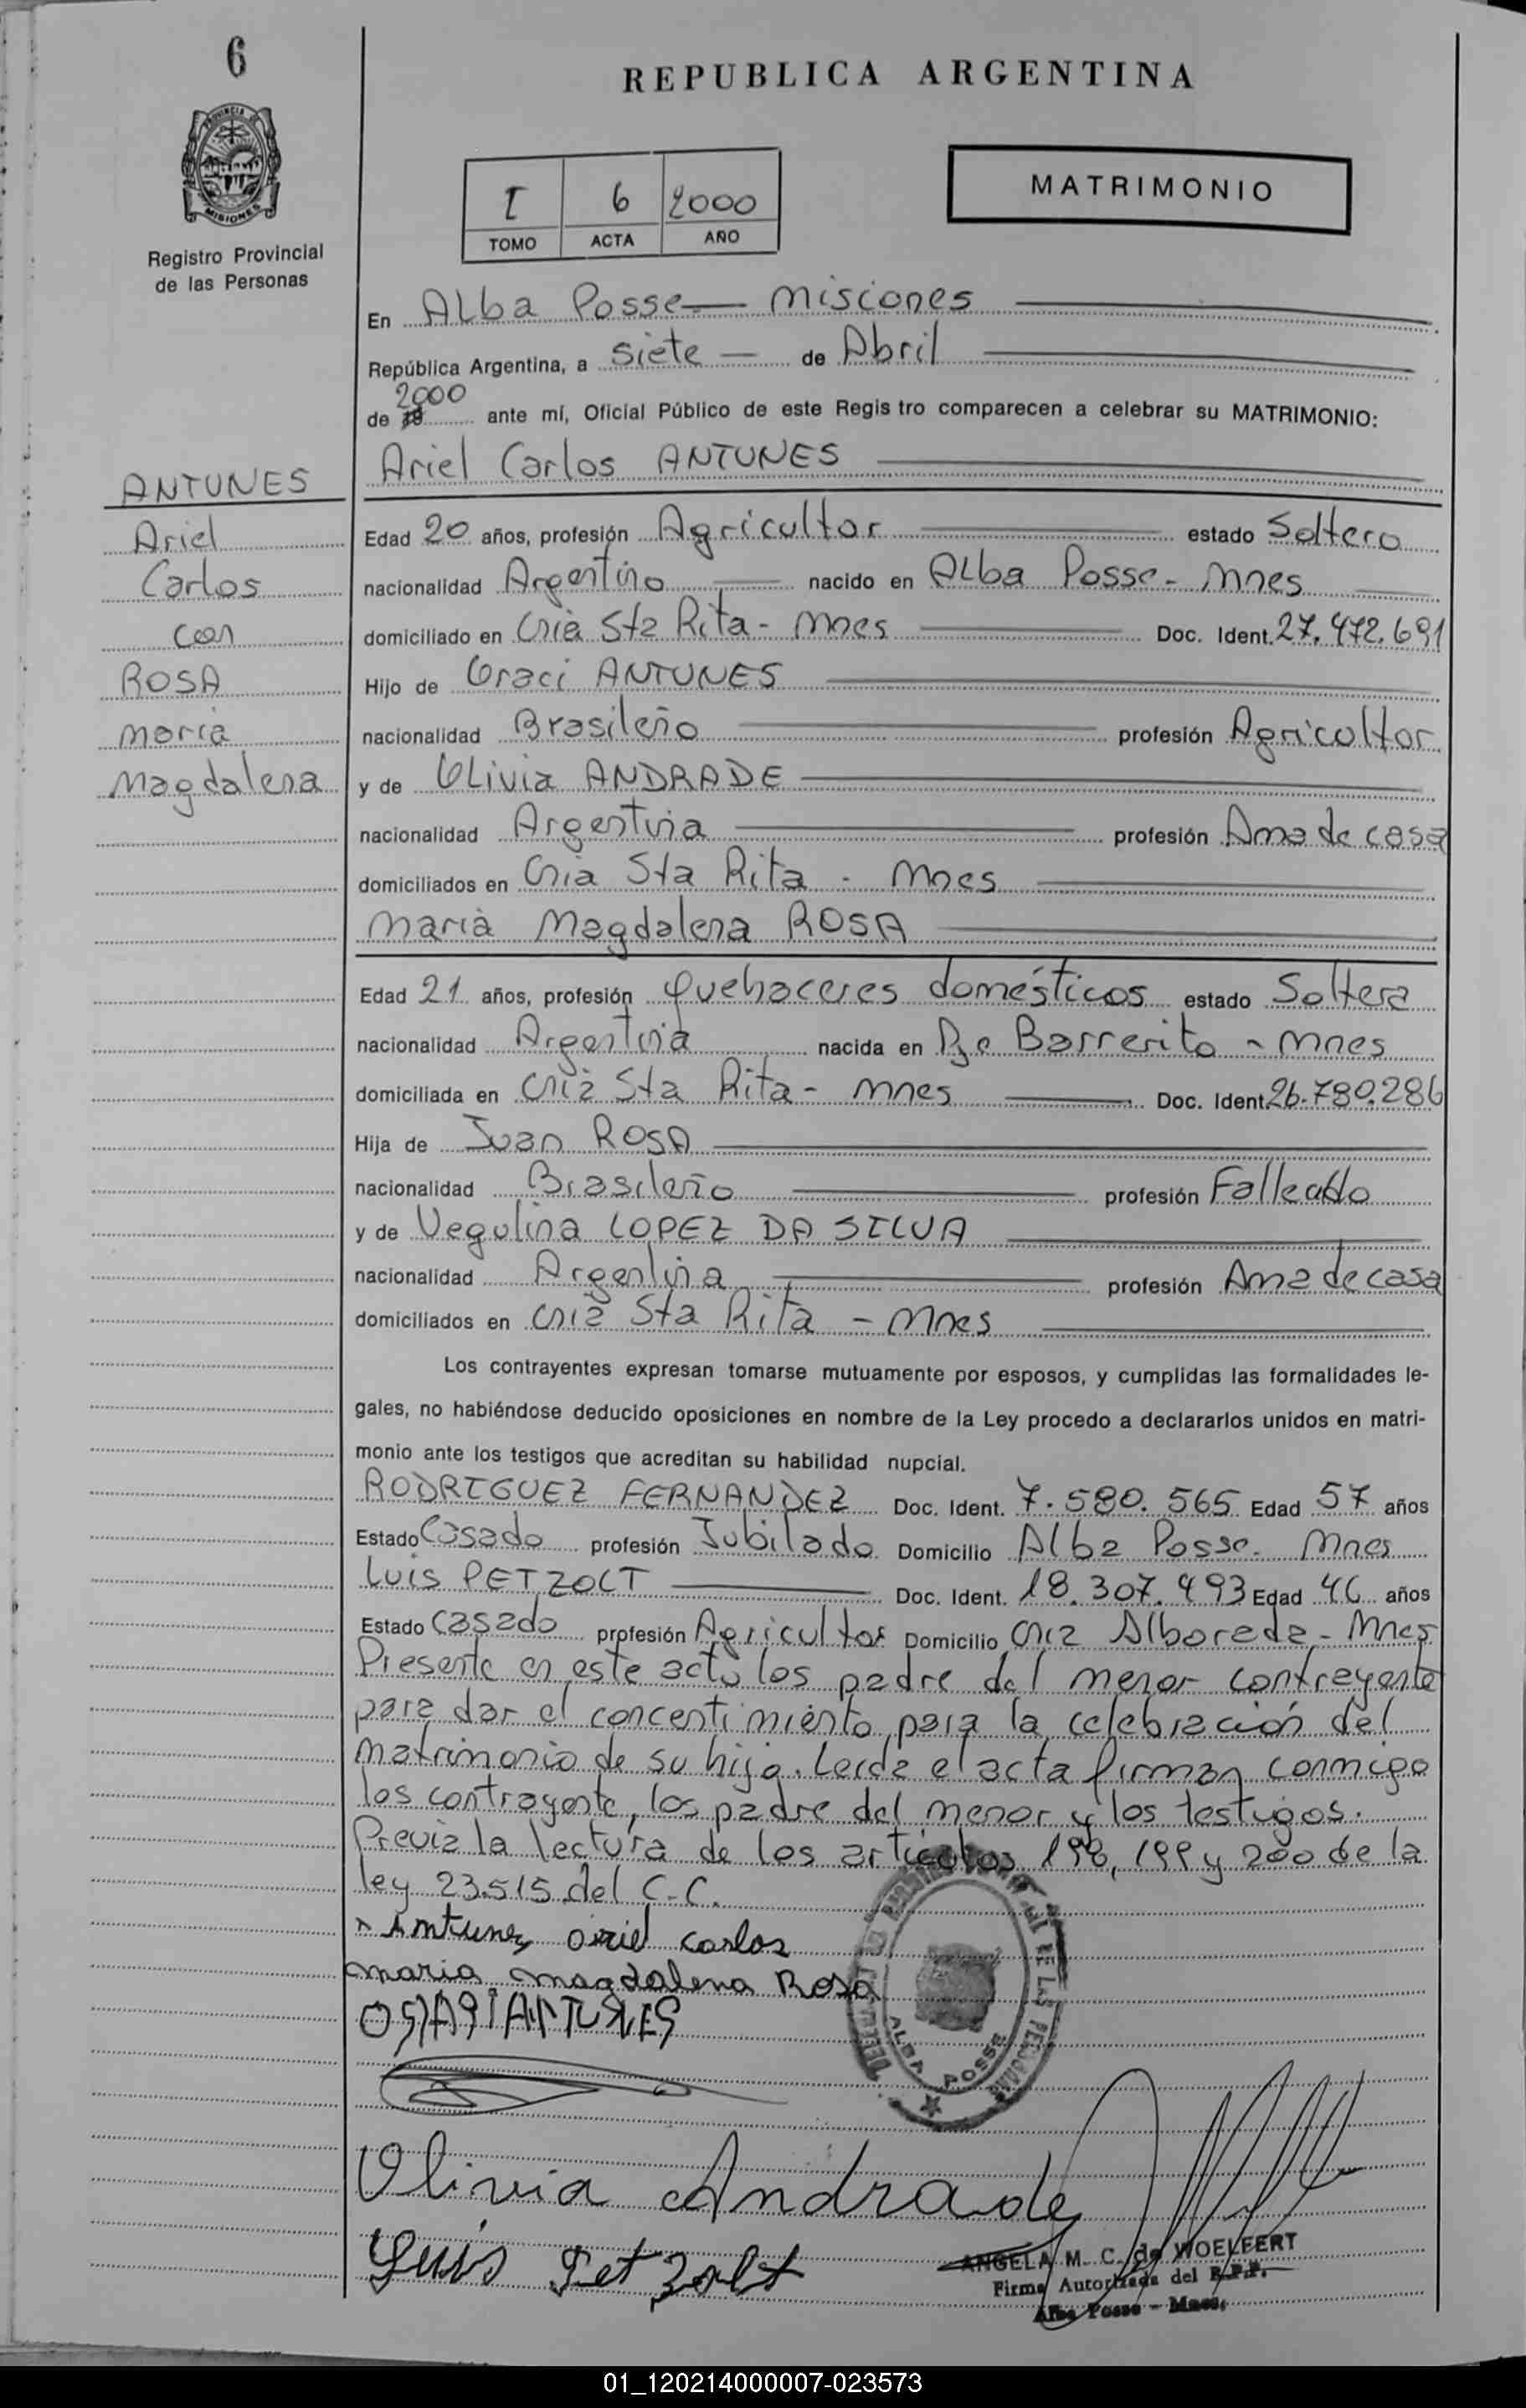 6
REPUBLICA ARGENTINA
PROVINCIA DE MISIONES
Registro Provincial
de las Personas
I 6 2000
TOMO ACTA AÑO
MATRIMONIO
En Alba Posse — Misiones
República Argentina, a siete — de Abril
de 19 2000 ante mí, Oficial Público de este Regis tro comparecen a celebrar su MATRIMONIO:
Ariel Carlos ANTUNES
ANTUNES
Ariel
Carlos
con
ROSA
Maria
Magdalena
Edad 20 años, profesión Agricultor estado Soltero
nacionalidad Argentino nacido en Alba Posse - Mnes
domiciliado en Cnia Sta Rita - Mnes Doc. Ident. 27.472.691
Hijo de Oraci ANTUNES
nacionalidad Brasileño profesión Agricultor
y de Olivia ANDRADE
nacionalidad Argentina profesión Ama de casa
domiciliados en Cnia Sta Rita - Mnes
Maria Magdalena ROSA
Edad 21 años, profesión quehaceres domésticos estado Soltera
nacionalidad Argentina nacida en Pje Barrerito - Mnes
domiciliada en Cnia Sta Rita - Mnes Doc. Ident. 26.780.286
Hija de Juan ROSA
nacionalidad Brasileño profesión Fallecido
y de Vegulina LOPEZ DA SILVA
nacionalidad Argentina profesión Ama de casa
domiciliados en Cnia Sta Rita - Mnes
Los contrayentes expresan tomarse mutuamente por esposos, y cumplidas las formalidades le-
gales, no habiéndose deducido oposiciones en nombre de la Ley procedo a declararlos unidos en matri-
monio ante los testigos que acreditan su habilidad nupcial.
RODRIGUEZ FERNANDEZ Doc. Ident. 7.580.565 Edad 57 años
Estado Casado profesión Jubilado Domicilio Alba Posse - Mnes
Luis PETZOLT Doc. Ident. 18.307.493 Edad 46 años
Estado Casado profesión Agricultor Domicilio Cnia Alboreda - Mnes
Presente en este acto los padre del menor contrayente
para dar el concentimiento para la celebracion del
matrimonio de su hijo. Leida el acta firman conmigo
los contrayente, los padre del menor y los testigos.
Previa la lectura de los artículos 198, 199 y 200 de la
ley 23.515 del C.C.
Antunes Ariel Carlos
Maria Magdalena Rosa
ANTUNES
ALBA POSSE
Olivia Andrade
Luis Petzolt
ANGELA M. C. de WOELFERT
Firma Autorizada del R.P.P.
Alba Posse - Mnes.
01_120214000007-023573